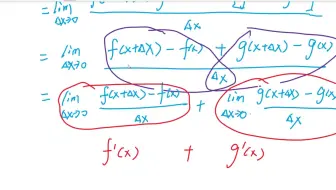 Δx
= lim Δx→0 f(x+Δx) - f(x) + g(x+Δx) - g(x) / Δx
= lim Δx→0 f(x+Δx) - f(x) / Δx + lim Δx→0 g(x+Δx) - g(x) / Δx
f'(x) + g'(x)